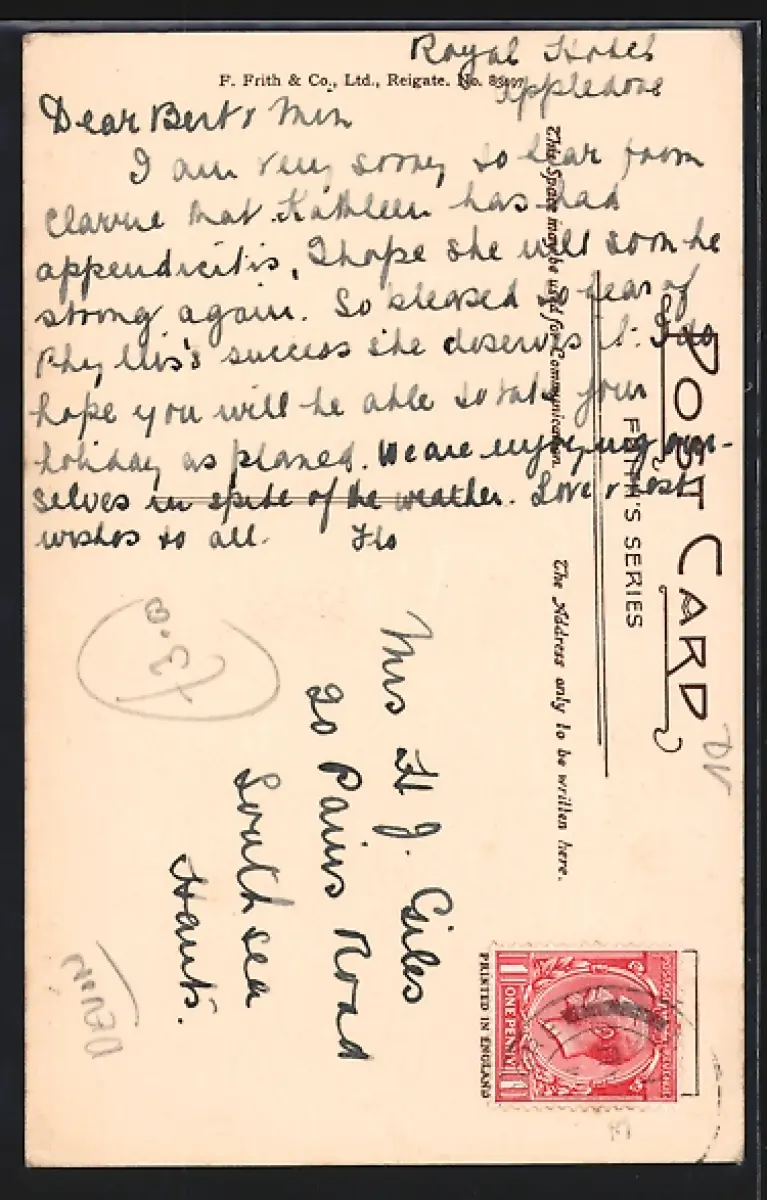 Royal Hotel
Appledore
F. Frith & Co., Ltd., Reigate. No.
Dear Bert & Min
I am very sorry to hear from
Clarrie that Kathleen has had
appendicitis, I hope she will soon be
strong again. So pleased to hear of
Phyllis's success she deserves it. I do
hope you will be able to take your
holiday as planed. We are enjoying our-
selves in spite of the weather. Love & best
wishes to all. Flo
POST CARD
FRITH'S SERIES
This Space may be used for Communication.
The Address only to be written here.
Mrs H J. Giles
20 Pains Road
Southsea
Hants.
£3.00
DEVON
DV
PRINTED IN ENGLAND
POSTAGE REVENUE
1 ONE PENNY 1